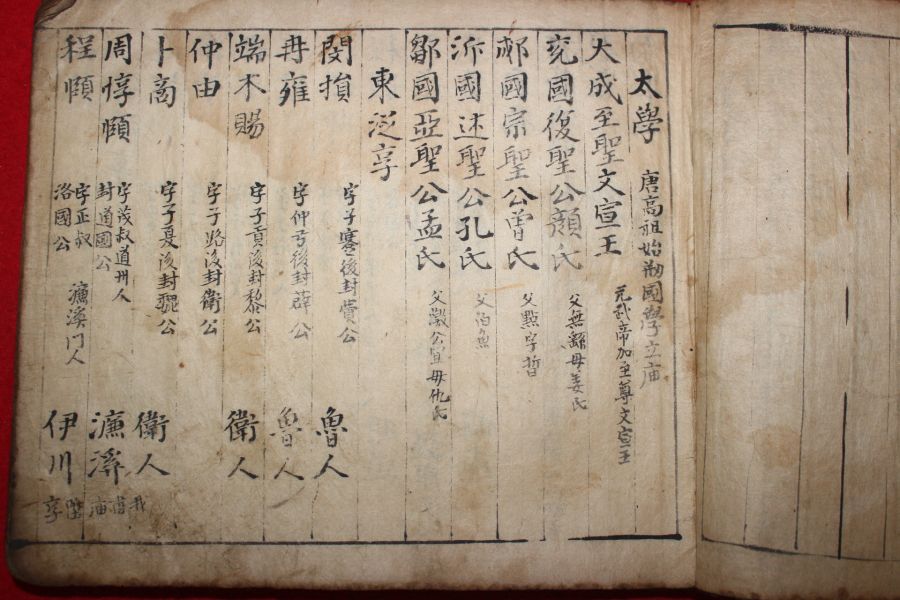 太學 唐高祖始勅國學立庙
大成至聖文宣王 元武帝加至尊文宣王
兗國復聖公顔氏 父無繇母姜氏
郕國宗聖公曽氏 父點字晳
沂國述聖公孔氏 父伯魚
鄒國亞聖公孟氏 父激公宜母仉氏
東泛享
閔損 字子騫後封費公 魯人
冉雍 字仲弓後封薛公 魯人
端木賜 字子貢後封黎公 衛人
仲由 字子路後封衛公
卜商 字子夏後封魏公 衛人
周惇頤 字茂叔道州人 封道國公 濂溪
程頤 字正叔 洛國公 濂溪門人 伊川